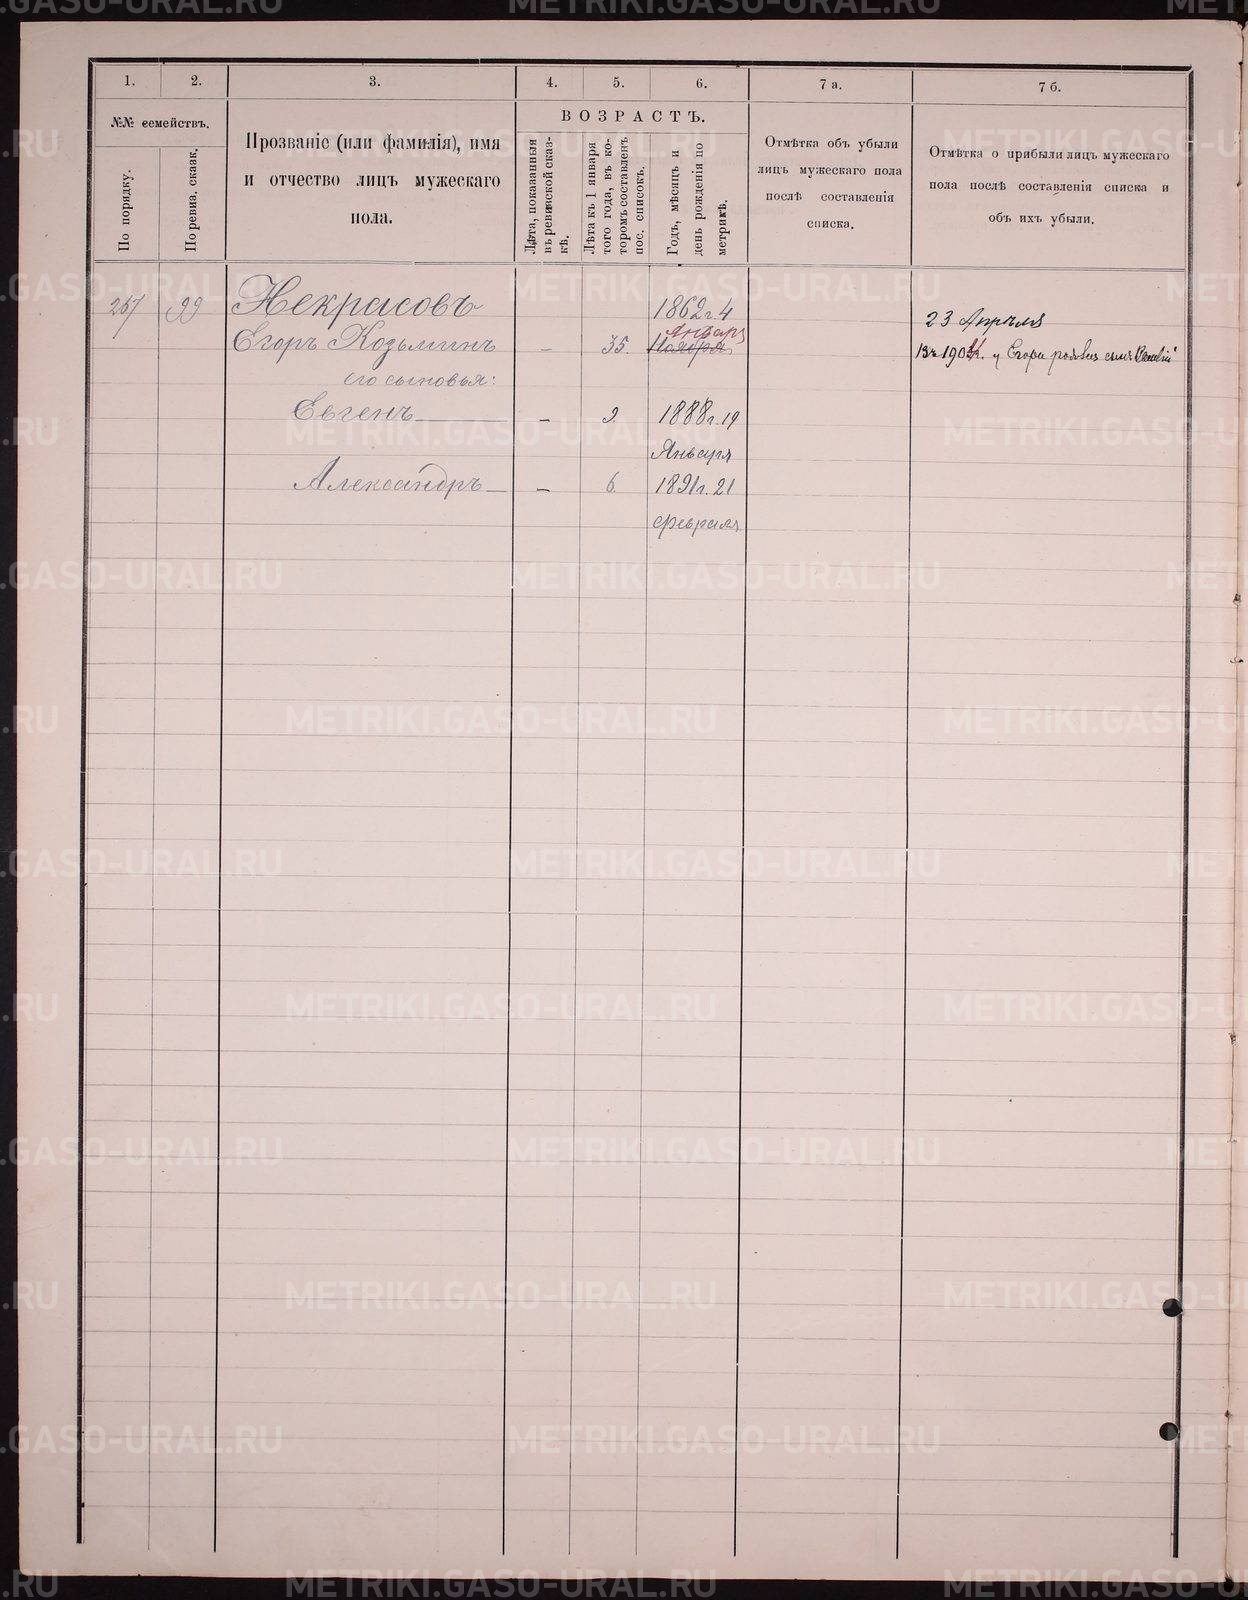 1.
2.
3.
4.
5.
6.
7 а.
7 б.
№№ семействъ.
По порядку.
По ревиз. сказк.
Прозваніе (или фамилія), имя
и отчество лицъ мужескаго
пола.
ВОЗРАСТЪ.
Лѣта, показанныя
въ ревизской сказ-
кѣ.
Лѣта къ 1 января
того года, въ ко-
торомъ составленъ
пос. списокъ.
Годъ, мѣсяцъ и
день рожденія по
метрикѣ.
Отмѣтка объ убыли
лицъ мужескаго пола
послѣ составленія
списка.
Отмѣтка о прибыли лицъ мужескаго
пола послѣ составленія списка и
объ ихъ убыли.
267 99 Некрасовъ 1862 г. 4
Января
Егоръ Козьминъ — 35. Ноября
его сыновья:
Евгенъ — 9. 1888 г. 19
Января
Александръ — — 6. 1891 г. 21
Февраля
23 Апрѣля
г. у Егора сынъ
METRIKI.GASO-URAL.RU